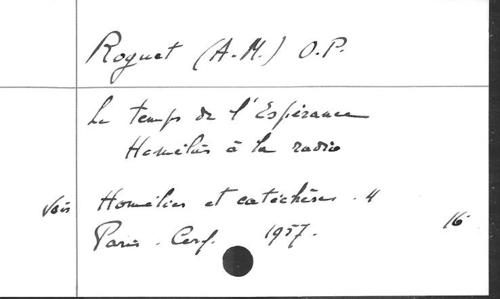 Roguet (A.-M.) O.P.
Le temps de l'Espérance
Homélies à la radio
Voir Homélies et catéchèses. 4
Paris. Cerf. 1957. 16